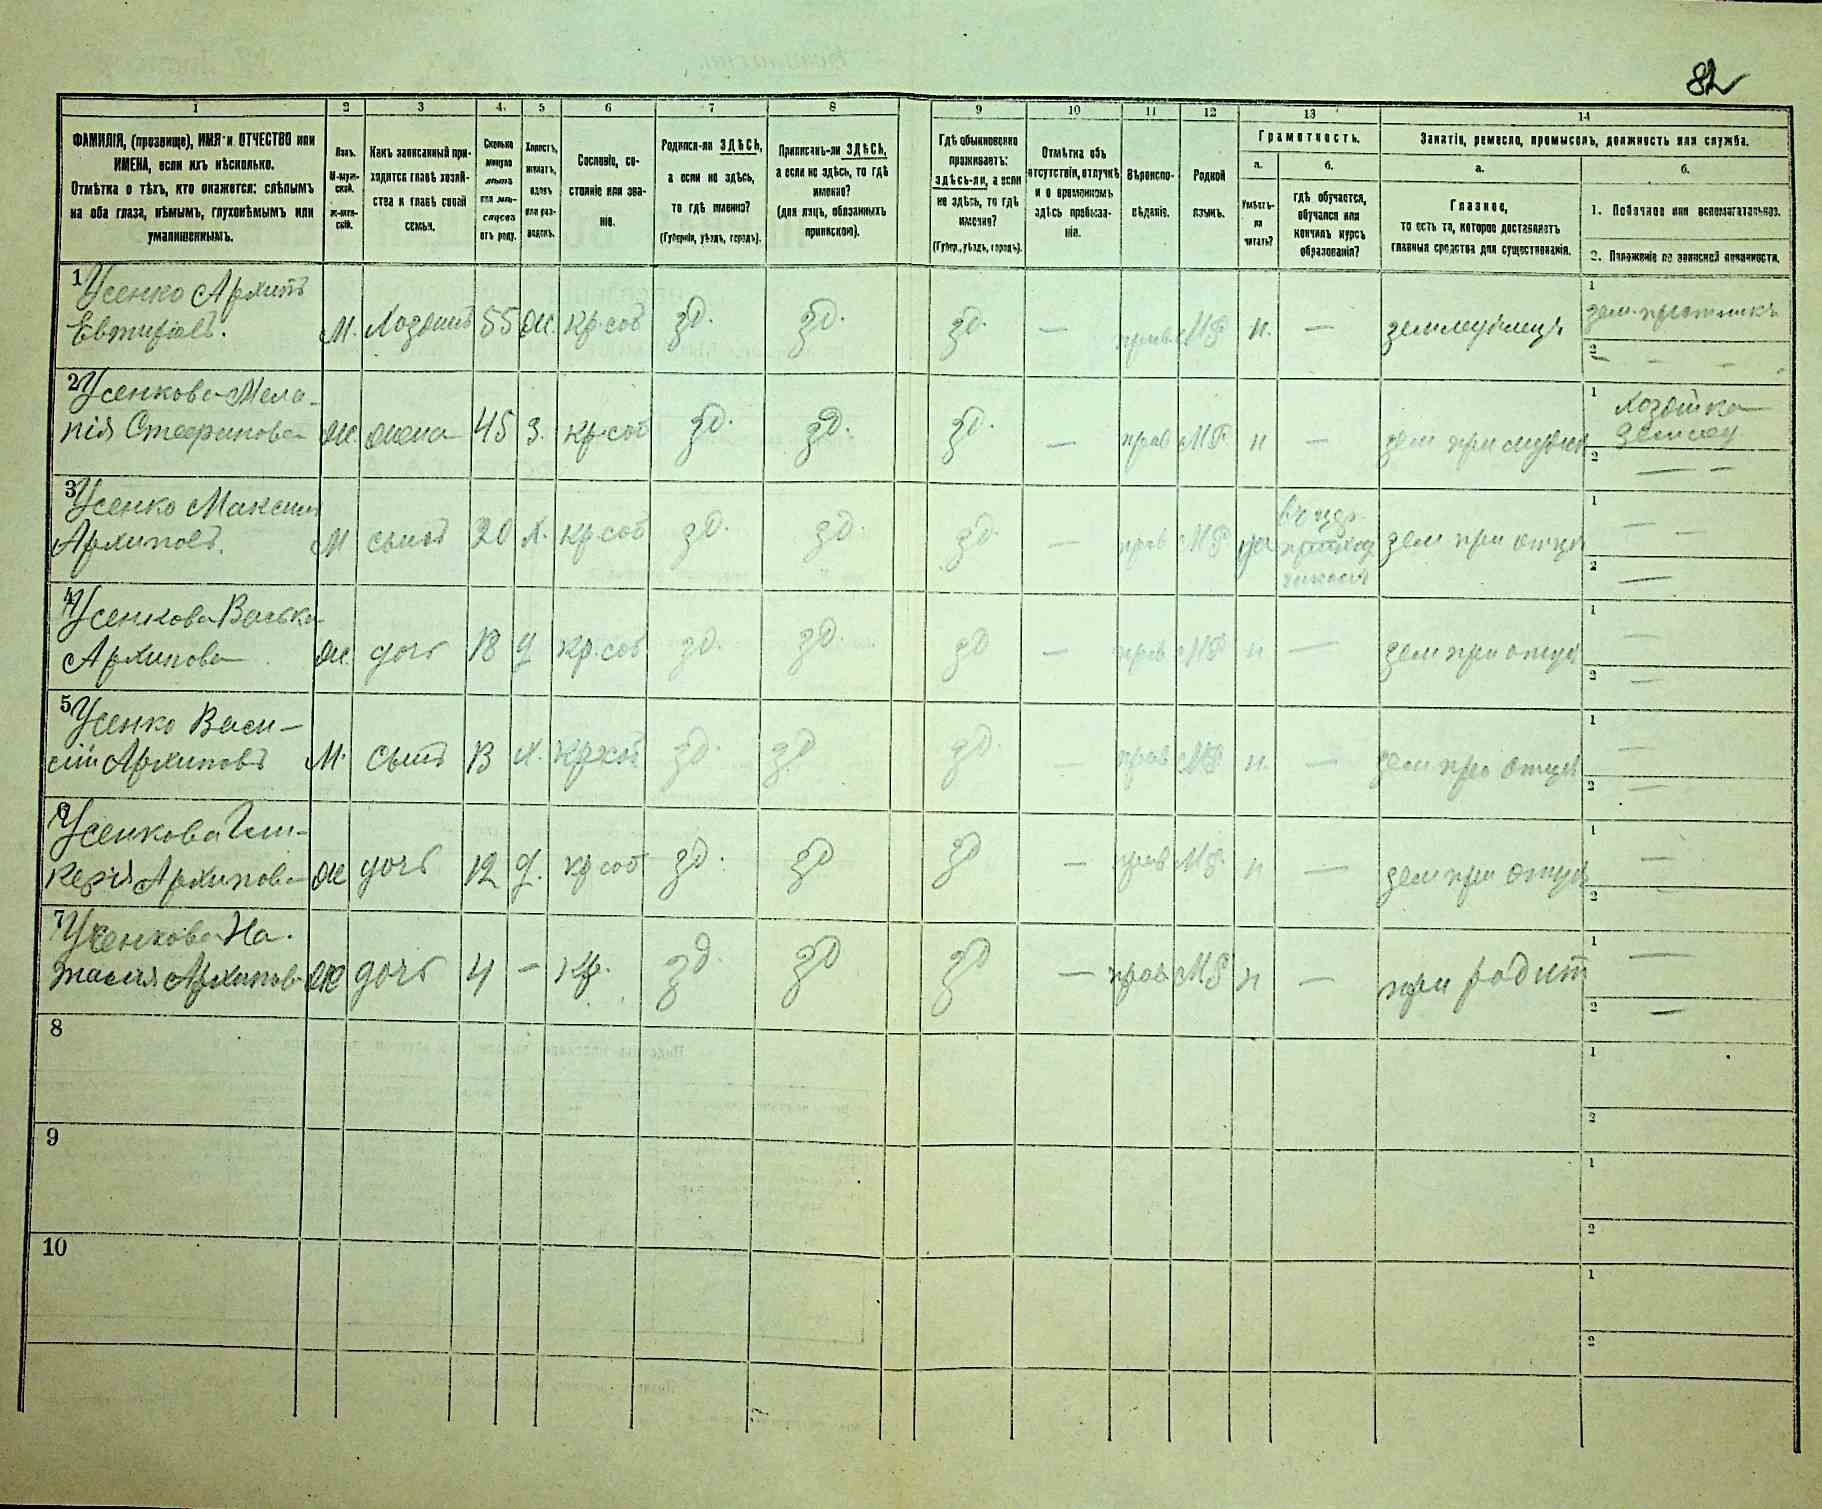 82
1 2 3 4. 5 6 7 8 9 10 11 12 13 14
ФАМИЛІЯ, (прозвище), ИМЯ и ОТЧЕСТВО или
ИМЕНА, если ихъ нѣсколько.
Отмѣтка о тѣхъ, кто окажется: слѣпымъ
на оба глаза, нѣмымъ, глухонѣмымъ или
умалишеннымъ.
Полъ.
М-муж-
ской.
Ж-жен-
скій.
Какъ записанный при-
ходится главѣ хозяй-
ства и главѣ своей
семьи.
Сколько
минуло
лѣтъ
или мѣ-
сяцевъ
отъ роду.
Холостъ,
женатъ,
вдовъ
или раз-
веденъ.
Сословіе, со-
стояніе или зва-
ніе.
Родился-ли ЗДѢСЬ,
а если не здѣсь,
то гдѣ именно?
(Губернія, уѣздъ, городъ).
Приписанъ-ли ЗДѢСЬ,
а если не здѣсь, то гдѣ
именно?
(для лицъ, обязанныхъ
припискою).
Гдѣ обыкновенно
проживаетъ:
здѣсь-ли, а если
не здѣсь, то гдѣ
именно?
(Губер., уѣздъ, городъ).
Отмѣтка объ
отсутствіи, отлучкѣ
и о временномъ
здѣсь пребыва-
ніи.
Вѣроиспо-
вѣданіе.
Родной
языкъ.
Грамотность.
а. б.
Умѣетъ-
ли
читать?
гдѣ обучается,
обучался или
кончилъ курсъ
образованія?
Занятіе, ремесло, промыселъ, должность или служба.
а. б.
Главное,
то есть то, которое доставляетъ
главныя средства для существованія.
1. Побочное или вспомогательное.
2. Положеніе по воинской повинности.
1 Усенко Архипъ
М. Хозяинъ 55 ж. кр. соб зд. зд. зд. — прав М.Р. н. — 1
2 — — —
2 Усенкова Мела-
нія Стефанова ж. жена 45 З. кр. соб зд. зд. зд. — прав М.Р. н — 1 Хозяйка
2 — —
3 Усенко Максим
Архиповъ. М сынъ 20 Х. кр. соб зд. зд. зд. — прав М.Р. да зем при отцѣ 1 — —
2 —
4 Усенкова
Архипова ж. дочь 18 д кр. соб зд. зд. зд — прав. М.Р. н — зем при отцѣ 1 —
2 —
5 Усенко Васи-
лій Архиповъ М. сынъ Х. зд. зд зд. — прав М.Р. н. — зем при отцѣ 1 —
2 —
6 Усенкова Гли-
керія Архипова ж дочь 12 д. кр соб зд. зд зд — прав М.Р. н — зем при отцѣ 1 —
2
7 Усенкова На-
талія Архипов ж дочь 4 — кр. зд. зд зд — прав М.Р н — при родит 1 —
2 —
8 1
2
9 1
2
10 1
2